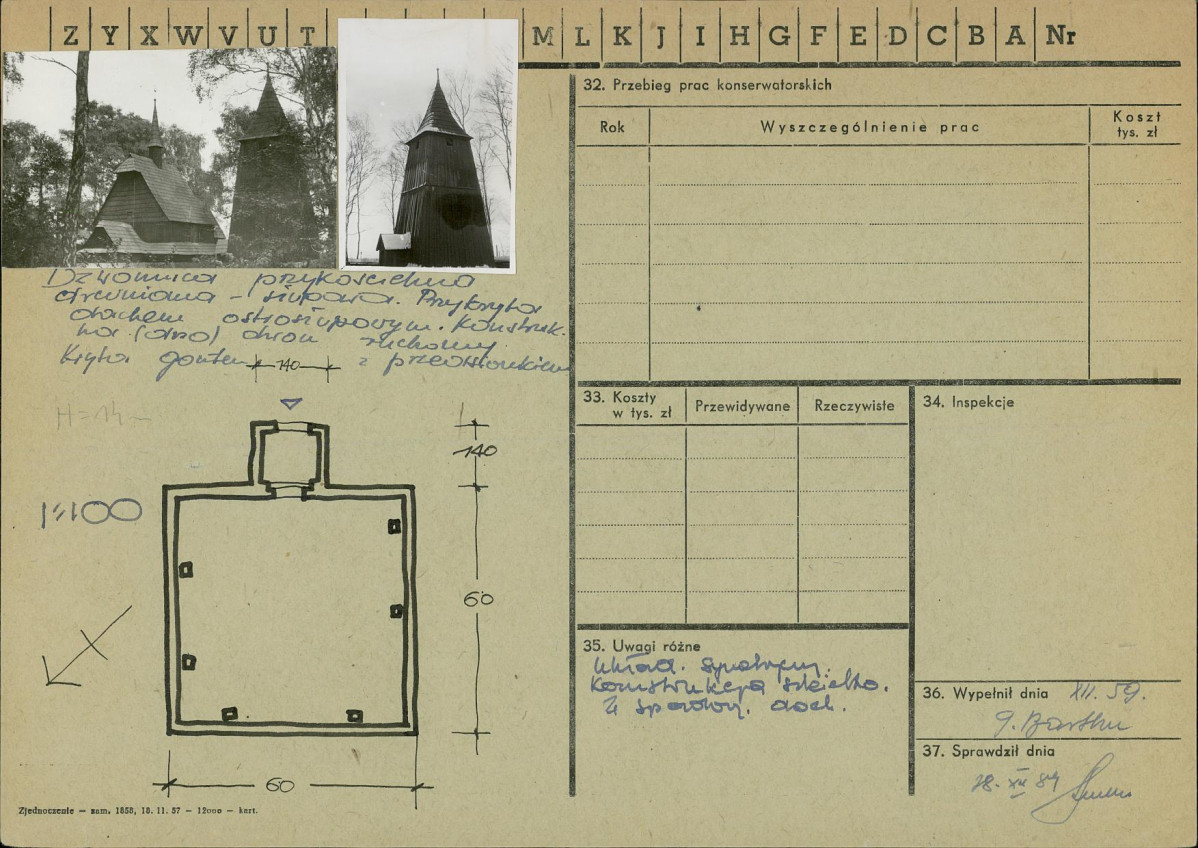 Z Y X W V U T M L K J I H G F E D C B A Nr
Dzwonnica przykościelna
drewniana – Przykryta
dachem ostrosłupowym. Konstruk.
Kryta gontem z przedsionkiem
140
H = 14
1:100
140
60
60
Zjednoczenie — zam. 1858, 18. 11. 57 — 12000 — kart.
32. Przebieg prac konserwatorskich
Rok Wyszczególnienie prac Koszt tys. zł
33. Koszty w tys. zł Przewidywane Rzeczywiste
34. Inspekcje
35. Uwagi różne
Układ.
Konstrukcja
dach.
36. Wypełnił dnia XII. 59.
37. Sprawdził dnia